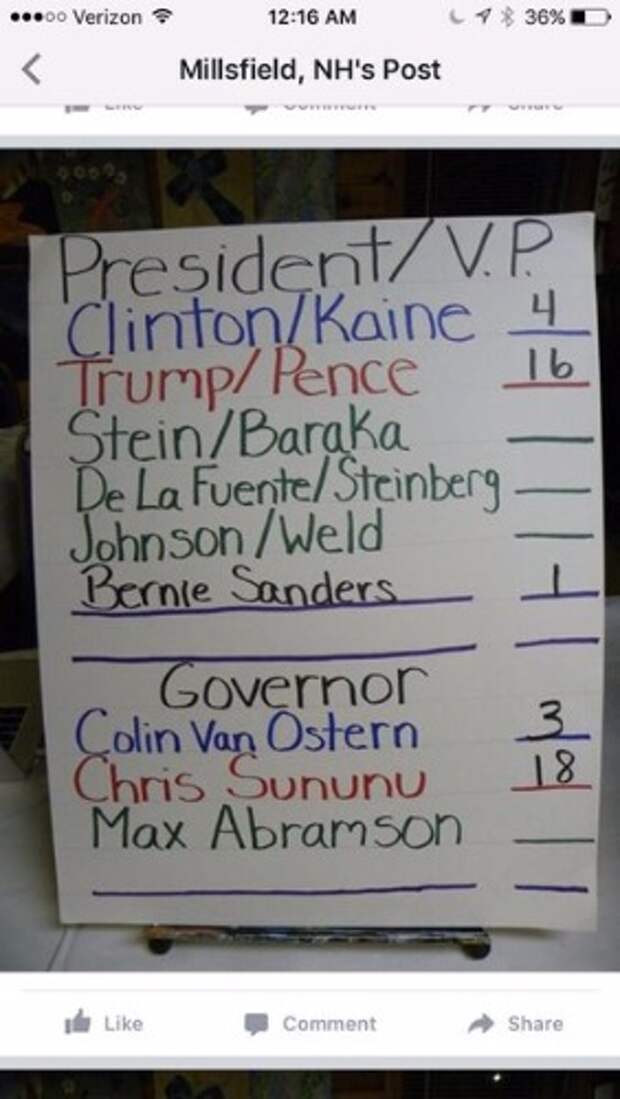 Verizon 12:16 AM 36%
Millsfield, NH's Post
Like Comment Share
President/V.P.
Clinton/Kaine 4
Trump/Pence 16
Stein/Baraka
De La Fuente/Steinberg
Johnson/Weld
Bernie Sanders 1
Governor
Colin Van Ostern 3
Chris Sununu 18
Max Abramson
Like Comment Share